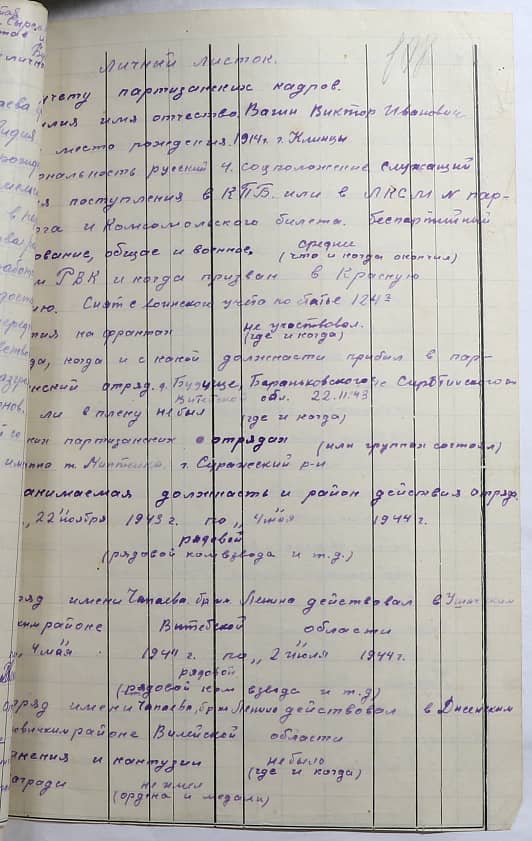 Личный листок.
учету партизанских кадров.
илия имя отчество. Вагин Виктор Иванович
место рождения. 1914г. г. Клинцы
ональность русский 4. соцположение служащий
я поступления в КПБ. или в ЛКСМ № пар-
та и Комсомольского билета. беспартийный
ование, общае и военное. средние
(что и когда окончил)
м РВК и когда призван в Красную
ию. Снят с воинского учета по статье 124 з
тия на фронтах не участвовал.
(где и когда)
да, когда и с какой должности прибыл в пар-
нский отряд. д. Будище, Бараньковского с/с Сиротинского
Витебской обл. 22.11.43
ли в плену не был
(где и когда)
ких партизанских отрядах (или группах состоял)
имени г. Суражский р-н
анимаемая должность и район действия отряд.
„22" ноября 1943 г. по „4" мая 1944 г.
рядовой
(рядовой ком взвода и т.д.)
ряд имени Чапаева. бриг. Ленина действовал в Ушачским
ким районе Витебской области
4" мая 1944 г. по „2" июля 1944 г.
рядовой
(рядовой ком взвода и т.д)
отряд имени Чапаева, бриг Ленина действовал в Дисенским
районе Вилейской области
анения и контузии не было
(где и когда)
агради не имел
(ордена и медали)